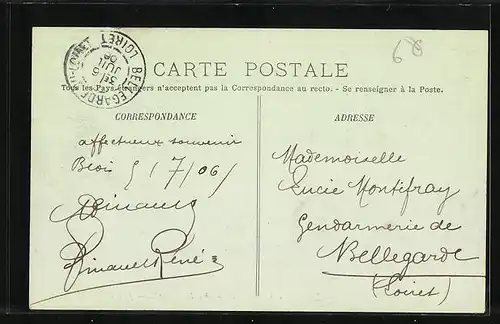 68
BELLEGARDE-DU-LOIRET
LOIRET
CARTE POSTALE
Tous les Pays étrangers n'acceptent pas la Correspondance au recto. - Se renseigner à la Poste.
CORRESPONDANCE
affectueux souvenir
5/7/06
René
ADRESSE
Mademoiselle
Lucie Montifray
Gendarmerie de
Bellegarde
(Loiret)